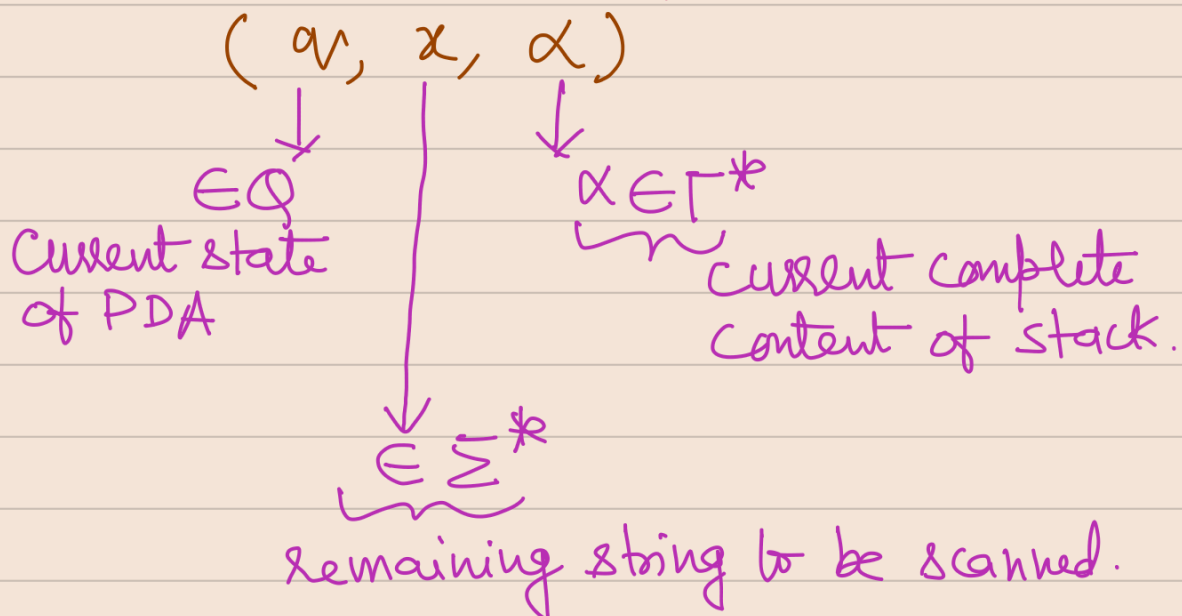 (q, x, α)
∈Q
α∈Γ*
Current state
of PDA
current complete
content of stack.
∈ Σ*
remaining string to be scanned.